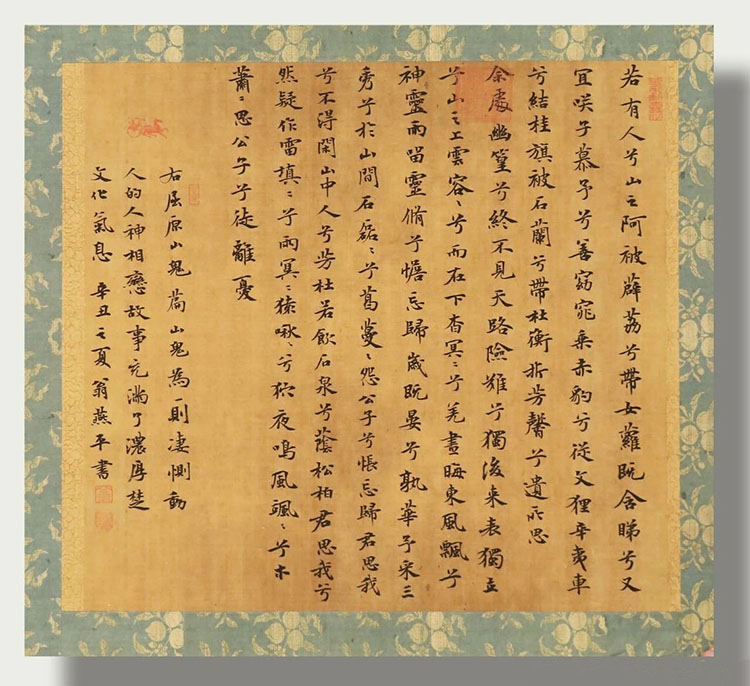 若有人兮山之阿被薜荔兮帶女蘿既含睇兮又
宜咲子慕予兮善窈窕乘赤豹兮從文狸辛夷車
兮結桂旗被石蘭兮帶杜衡折芳馨兮遺所思
余處幽篁兮終不見天路險難兮獨後来表獨立
兮山之上雲容〻兮而在下杳冥〻兮羌晝晦東風飄兮
神靈雨留靈脩兮憺忘歸歲既晏兮孰華予采三
秀兮於山間石磊〻兮葛蔓〻怨公子兮悵忘歸君思我
兮不得閑山中人兮芳杜若飲石泉兮蔭松柏君思我兮
然疑作雷填〻兮雨冥〻猿啾〻兮狖夜鳴風颯〻兮木
蕭〻思公子兮徒離憂
右屈原山鬼篇山鬼為一則淒惻動
人的人神相戀故事充滿了濃厚楚
文化氣息 辛丑之夏翁燕平書